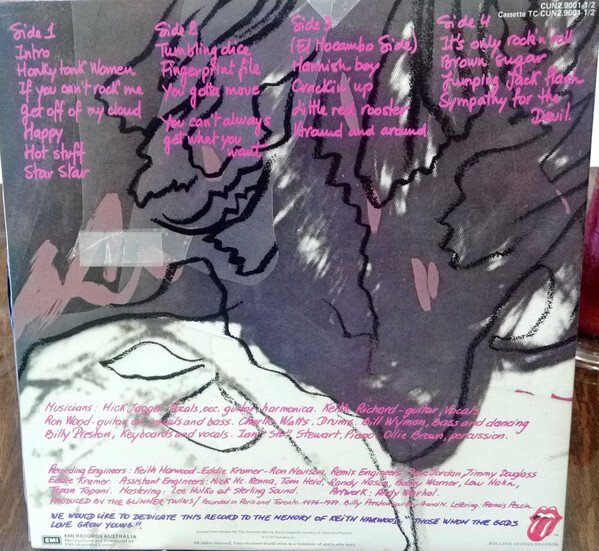 CUN2.9001-1/2
Cassette TC-CUN2.9001-1/2
Side 1
Intro
Honky tonk Women
If you can't rock me
get off of my cloud
Happy
Hot stuff
Star Star
Side 2
Tumbling dice
Fingerprint file
You gotta move
You can't always
get what you
want
Side 3
(El Mocambo Side)
Mannish boy
Crackin' up
Little red rooster
Around and around
Side 4
It's only rock'n roll
Brown sugar
Jumping Jack flash
Sympathy for the
Devil.
Musicians: Mick Jagger - Vocals, occ. guitar, harmonica. Keith Richard - guitar, Vocals
Ron Wood - guitar, vocals and bass. Charlie Watts. Drums. Bill Wyman, Bass and dancing
Billy Preston, Keyboards and vocals. Ian "Stu" Stewart. Piano. Ollie Brown, percussion.
Recording Engineers: Keith Harwood - Eddie Kramer - Ron Nevison. Remix Engineers: Dave Jordan, Jimmy Douglass
Eddie Kramer. Assistant Engineers: Mick Mc. Kenna, Tom Heid, Randy Mason, Bobby Warner, Lew Hahn,
Tapani Tapanai. Mastering: Lee Hulko at Sterling Sound. Artwork: Andy Warhol.
PRODUCED BY THE GLIMMER TWINS / Recorded in Paris and Toronto 1976-1977. Billy Preston courtesy A and M. Lettering,
WE WOULD LIKE TO DEDICATE THIS RECORD TO THE MEMORY OF KEITH HARWOOD. "THOSE WHOM THE GODS
LOVE GROW YOUNG".
EMI
EMI RECORDS AUSTRALIA
All rights reserved. Unauthorised duplication is a violation of applicable laws.
ROLLING STONES RECORDS